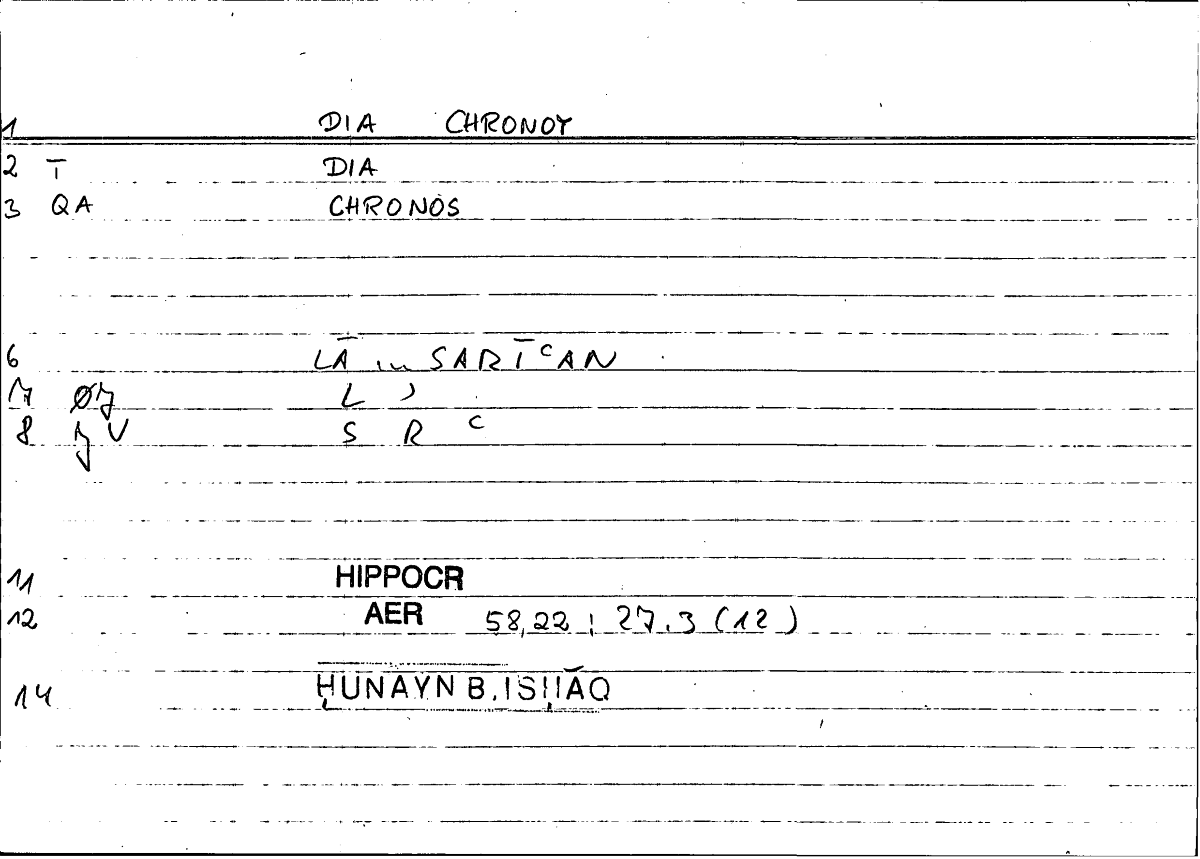 1 DIA CHRONOY
2 T DIA
3 QA CHRONOS
6 LĀ SARĪᶜAN
7 L ʾ
8 S R ᶜ
11 HIPPOCR
12 AER 58,22 ; 27.3 (12)
14 ḤUNAYN B. ISḤĀQ